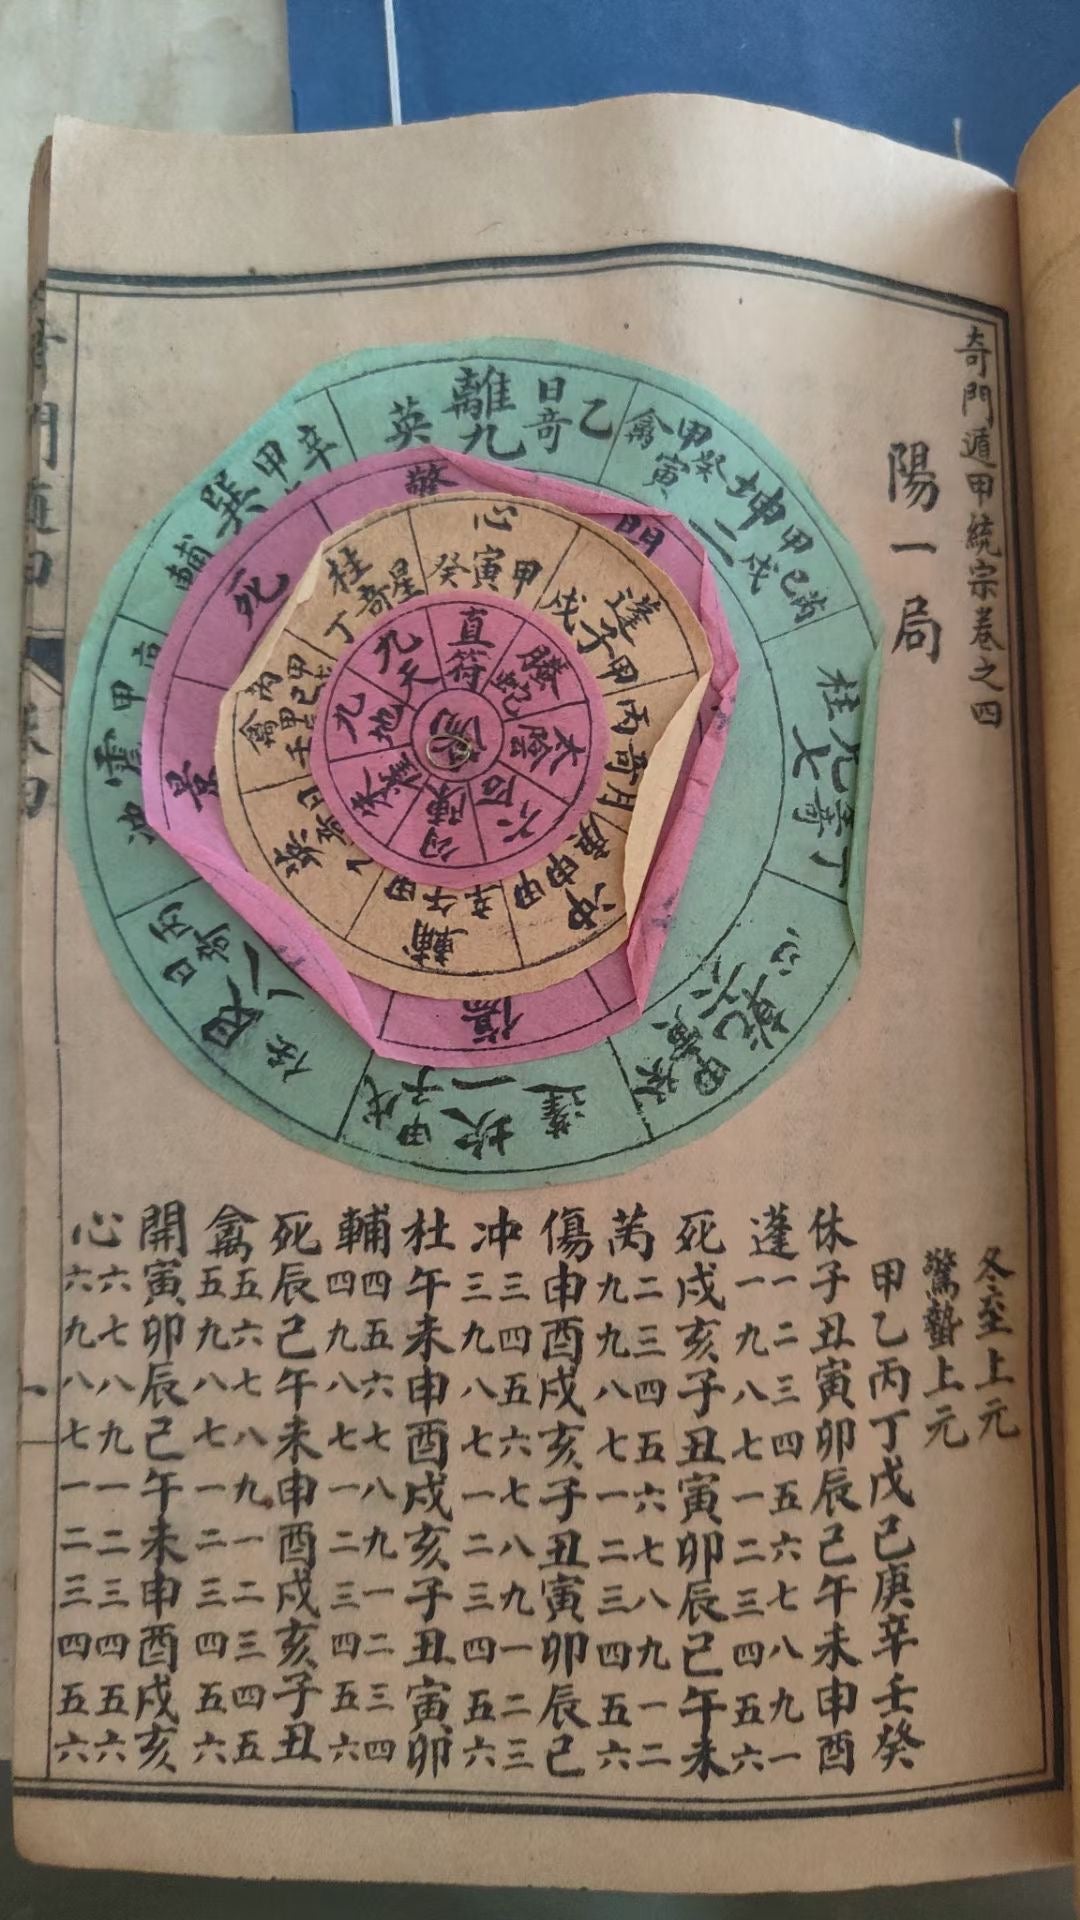 奇門遁甲統宗卷之四
陽一局
離九
英
日奇乙
禽甲癸寅
坤二
甲戌己丙
柱
七
奇丁
心
乾六
甲
蓬
坎一
甲子戊
艮八
任
甲
輔
巽
甲辛
驚
門
死
景
傷
心
甲寅癸
蓬
甲子戊
丙奇月
冲
甲申庚
輔
甲午辛
英
柱
星奇丁
直符
騰蛇
太陰
六合
勾陳
朱雀
九地
九天
冬至上元
驚蟄上元
甲乙丙丁戊己庚辛壬癸
休子丑寅卯辰己午未申酉
蓬一二三四五六七八九一
一九八七一二三四五六
死戌亥子丑寅卯辰己午未
芮二三四五六七八九一二
九九八七一二三四五六
傷申酉戌亥子丑寅卯辰己
冲三四五六七八九一二三
三九八七一二三四五六
杜午未申酉戌亥子丑寅卯
輔四五六七八九一二三四
四九八七一二三四五六
死辰己午未申酉戌亥子丑
禽五六七八九一二三四五
五九八七一二三四五六
開寅卯辰己午未申酉戌亥
心六七八九一二三四五六
六九八七一二三四五六